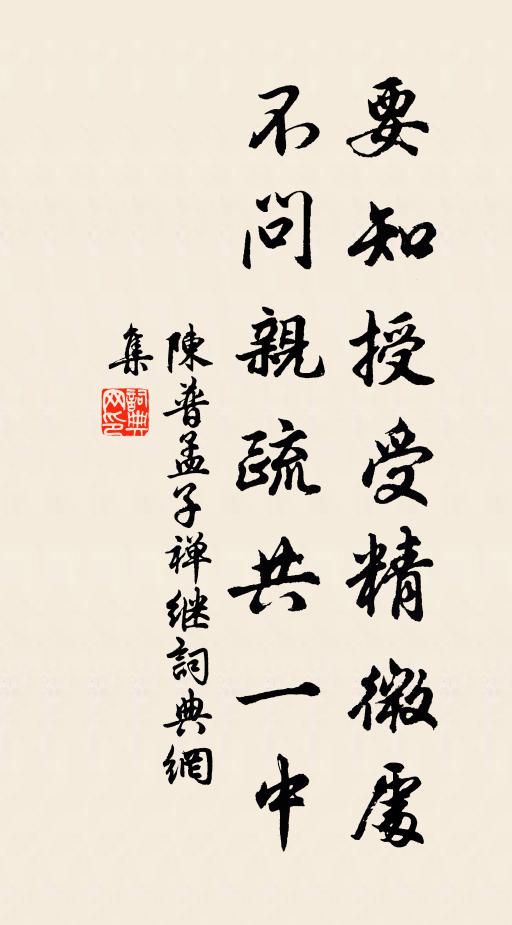 要知授受精微處
不問親疏共一中
陳普孟子禅继詞典網
集
詞典
网印